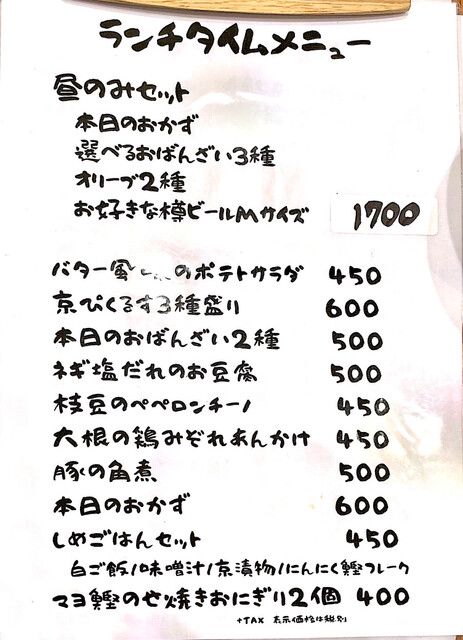 ランチタイムメニュー
昼のみセット
本日のおかず
選べるおばんざい3種
オリーブ2種
お好きな樽ビールMサイズ 1700
バター風味のポテトサラダ 450
京ぴくるす3種盛り 600
本日のおばんざい2種 500
ネギ塩だれのお豆腐 500
枝豆のペペロンチーノ 450
大根の鶏みぞれあんかけ 450
豚の角煮 500
本日のおかず 600
しめごはんセット 450
白ご飯/味噌汁/京漬物/にんにく鰹フレーク
マヨ鰹のせ焼きおにぎり2個 400
+TAX 表示価格は税別